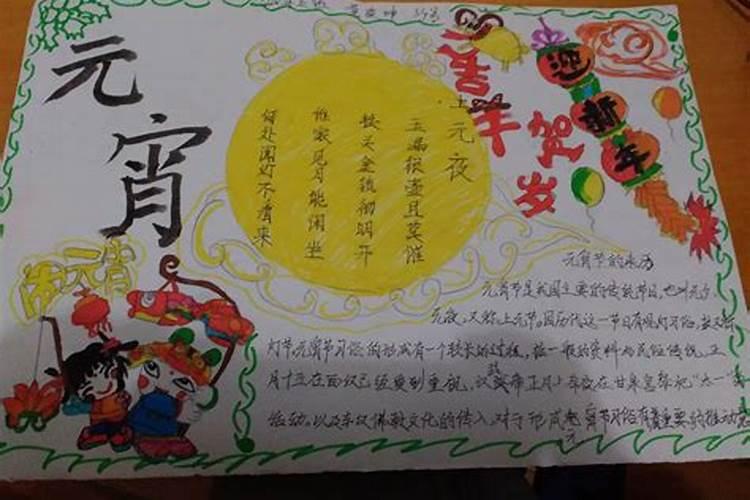 元宵
上元夜
玉漏银壶且莫催
铁关金锁彻明开
谁家见月能闲坐
何处闻灯不看来
喜羊羊
贺岁
迎新年
闹元宵
元宵节的来历
元宵节是我国主要的传统节日,也叫元夕、
元夜,又称上元节。因历代这一节日有观灯习俗,故又称
灯节。元宵节习俗的形成有一个较长的过程,据一般的资料与民俗传说,正
月十五在西汉已经受到重视,汉武帝正月上辛夜在甘泉宫祭祀“太一”
活动。以及东汉佛教文化的传入,对于形成元宵节习俗有着重要的推动意